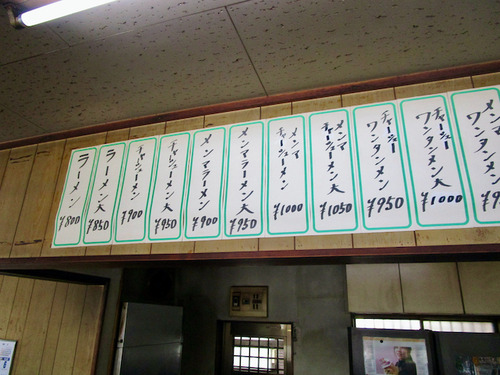 ラーメン
¥800
ラーメン大
¥850
チャーシューメン
¥900
チャーシューメン大
¥950
メンマラーメン
¥900
メンマラーメン大
¥950
メンマ
チャーシューメン
¥1000
メンマ
チャーシューメン大
¥1050
チャーシュー
ワンタンメン
¥950
チャーシュー
ワンタンメン大
¥1000
メンマ
ワンタンメン